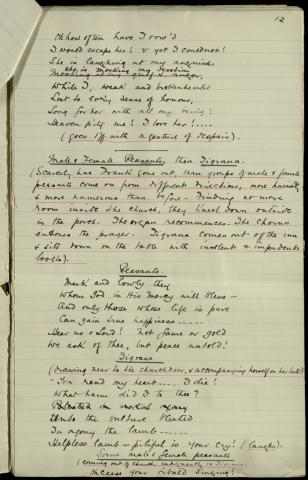 12
Oh how often have I vow'd
I would escape her! & yet I cannot!
She is laughing at my anguish
She is mocking devotion
While I, weak and brokenhearted
Lost to every sense of honour,
Long for her with all my being!
Heaven pity me! I love her!....
(goes off with a gesture of despair).
Male & Female Peasants, then Tigrana.
(Scarcely has Frank gone out, than groups of male & female
peasants come on from different directions, more hurried
& more numerous than before - Finding no more
room inside the church, they kneel down outside
in the porch. The organ recommences. The Chorus
entones the prayer. Tigrana comes out of the inn
& sits down on the table with insolent & impudent
looks).
Peasants.
Meek and lowly they
Whom God in His Mercy will bless -
And only those whose life is pure
Can gain true happiness ....
Hear us o Lord! Not fame or gold
We ask of thee, but peace untold!
Tigrana
(drawing near to the church door, & accompanying herself on her lute)
What harm did I to thee?
Unto the vulture bleated
In agony the lamb.....
Helpless lamb - pitiful is your cry! (laughs).
Some male & female peasants
(coming out of church, indignantly to Tigrana)
Cease your ribald singing!